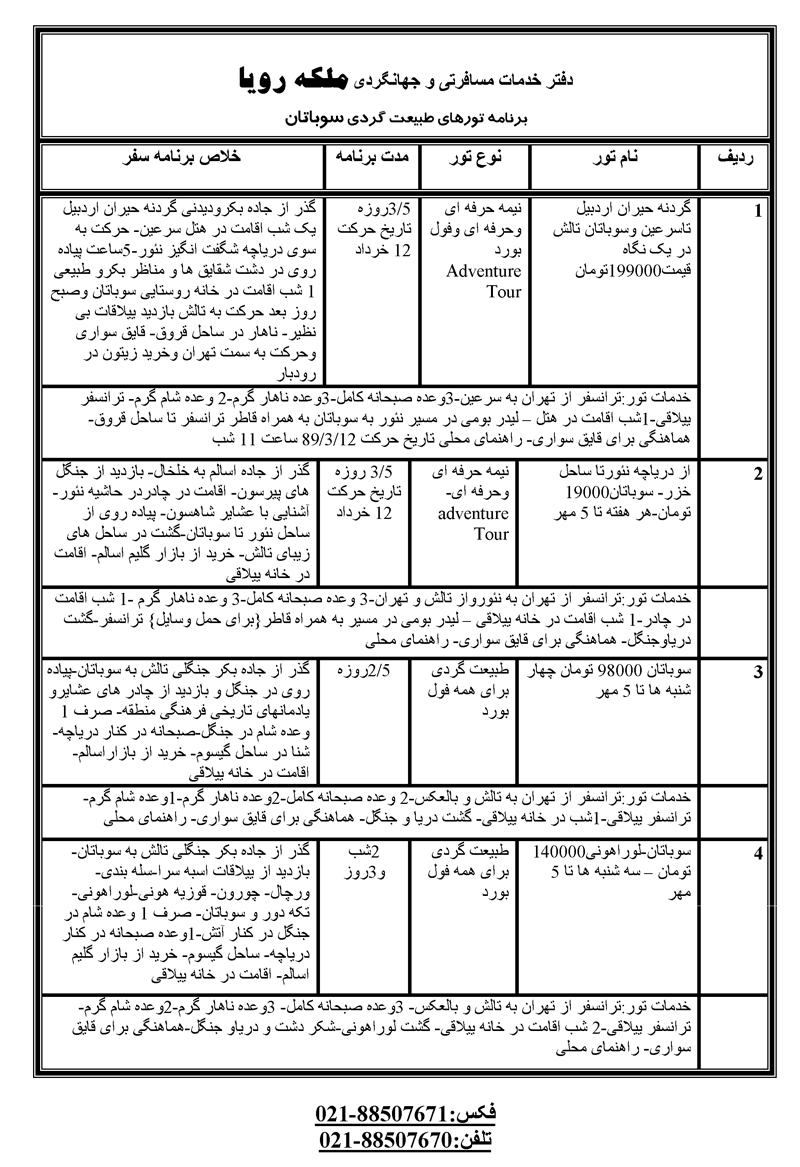 دفتر خدمات مسافرتی و جهانگردی ملکه رویا
برنامه تورهای طبیعت گردی سوباتان
ردیف
نام تور
نوع تور
مدت برنامه
خلاص برنامه سفر
1
گردنه حیران اردبیل
تاسرعین وسوباتان تالش
در یک نگاه
قیمت199000تومان
نیمه حرفه ای
وحرفه ای وفول
بورد
Adventure
Tour
3/5روزه
تاریخ حرکت
12 خرداد
گذر از جاده بکرودیدنی گردنه حیران اردبیل
یک شب اقامت در هتل سرعین- حرکت به
سوی دریاچه شگفت انگیز نئور-5ساعت پیاده
روی در دشت شقایق ها و مناظر بکرو طبیعی
1 شب اقامت در خانه روستایی سوباتان وصبح
روز بعد حرکت به تالش بازدید ییلاقات بی
نظیر- ناهار در ساحل قروق- قایق سواری
وحرکت به سمت تهران وخرید زیتون در
رودبار
خدمات تور:ترانسفر از تهران به سرعین-3وعده صبحانه کامل-3وعده ناهار گرم-2 وعده شام گرم- ترانسفر
ییلاقی-1شب اقامت در هتل – لیدر بومی در مسیر نئور به سوباتان به همراه قاطر ترانسفر تا ساحل قروق-
هماهنگی برای قایق سواری- راهنمای محلی تاریخ حرکت 89/3/12 ساعت 11 شب
2
از دریاچه نئورتا ساحل
خزر- سوباتان19000
تومان-هر هفته تا 5 مهر
نیمه حرفه ای
وحرفه ای-
adventure
Tour
3/5 روزه
تاریخ حرکت
12 خرداد
گذر از جاده اسالم به خلخال- بازدید از جنگل
های پیرسون- اقامت در چادردر حاشیه نئور-
آشنایی با عشایر شاهسون- پیاده روی از
ساحل نئور تا سوباتان-گشت در ساحل های
زیبای تالش- خرید از بازار گلیم اسالم- اقامت
در خانه ییلاقی
خدمات تور:ترانسفر از تهران به نئورواز تالش و تهران-3 وعده صبحانه کامل-3 وعده ناهار گرم -1 شب اقامت
در چادر-1 شب اقامت در خانه ییلاقی – لیدر بومی در مسیر به همراه قاطر {برای حمل وسایل} ترانسفر-گشت
دریاوجنگل- هماهنگی برای قایق سواری- راهنمای محلی
3
سوباتان 98000 تومان چهار
شنبه ها تا 5 مهر
طبیعت گردی
برای همه فول
بورد
2/5روزه
گذر از جاده بکر جنگلی تالش به سوباتان-پیاده
روی در جنگل و بازدید از چادر های عشایرو
یادمانهای تاریخی فرهنگی منطقه- صرف 1
وعده شام در جنگل-صبحانه در کنار دریاچه-
شنا در ساحل گیسوم- خرید از بازاراسالم-
اقامت در خانه ییلاقی
خدمات تور:ترانسفر از تهران به تالش و بالعکس-2 وعده صبحانه کامل-2وعده ناهار گرم-1وعده شام گرم-
ترانسفر ییلاقی-1شب در خانه ییلاقی- گشت دریا و جنگل- هماهنگی برای قایق سواری- راهنمای محلی
4
سوباتان-لوراهونی140000
تومان – سه شنبه ها تا 5
مهر
طبیعت گردی
برای همه فول
بورد
2شب
و3روز
گذر از جاده بکر جنگلی تالش به سوباتان-
بازدید از ییلاقات اسبه سرا-سله بندی-
ورچال- چورون- قوزیه هونی-لوراهونی-
تکه دور و سوباتان- صرف 1 وعده شام در
جنگل در کنار آتش-1وعده صبحانه در کنار
دریاچه- ساحل گیسوم- خرید از بازار گلیم
اسالم- اقامت در خانه ییلاقی
خدمات تور:ترانسفر از تهران به تالش و بالعکس- 3وعده صبحانه کامل- 3وعده ناهار گرم-2وعده شام گرم-
ترانسفر ییلاقی-2 شب اقامت در خانه ییلاقی- گشت لوراهونی-شکر دشت و دریاو جنگل-هماهنگی برای قایق
سواری- راهنمای محلی
فکس:021-88507671
تلفن:021-88507670